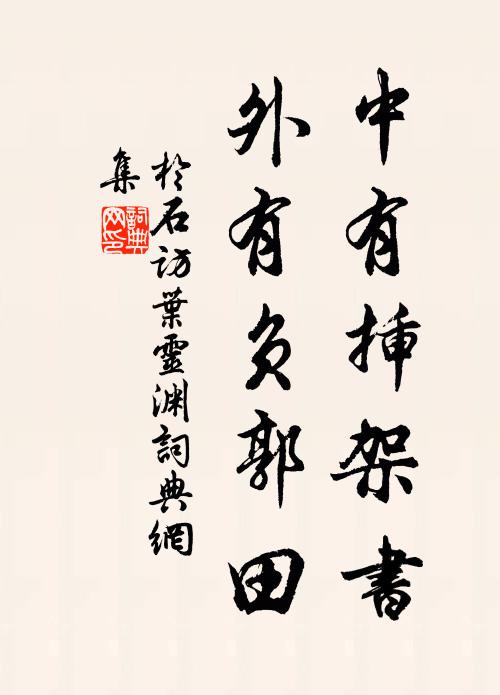 中有插架書
外有負郭田
於石訪葉靈渊詞典網
集
詞典
网印